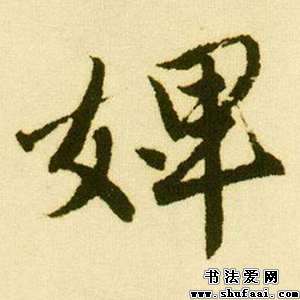 婢
书法爱网
www.shufaai.com